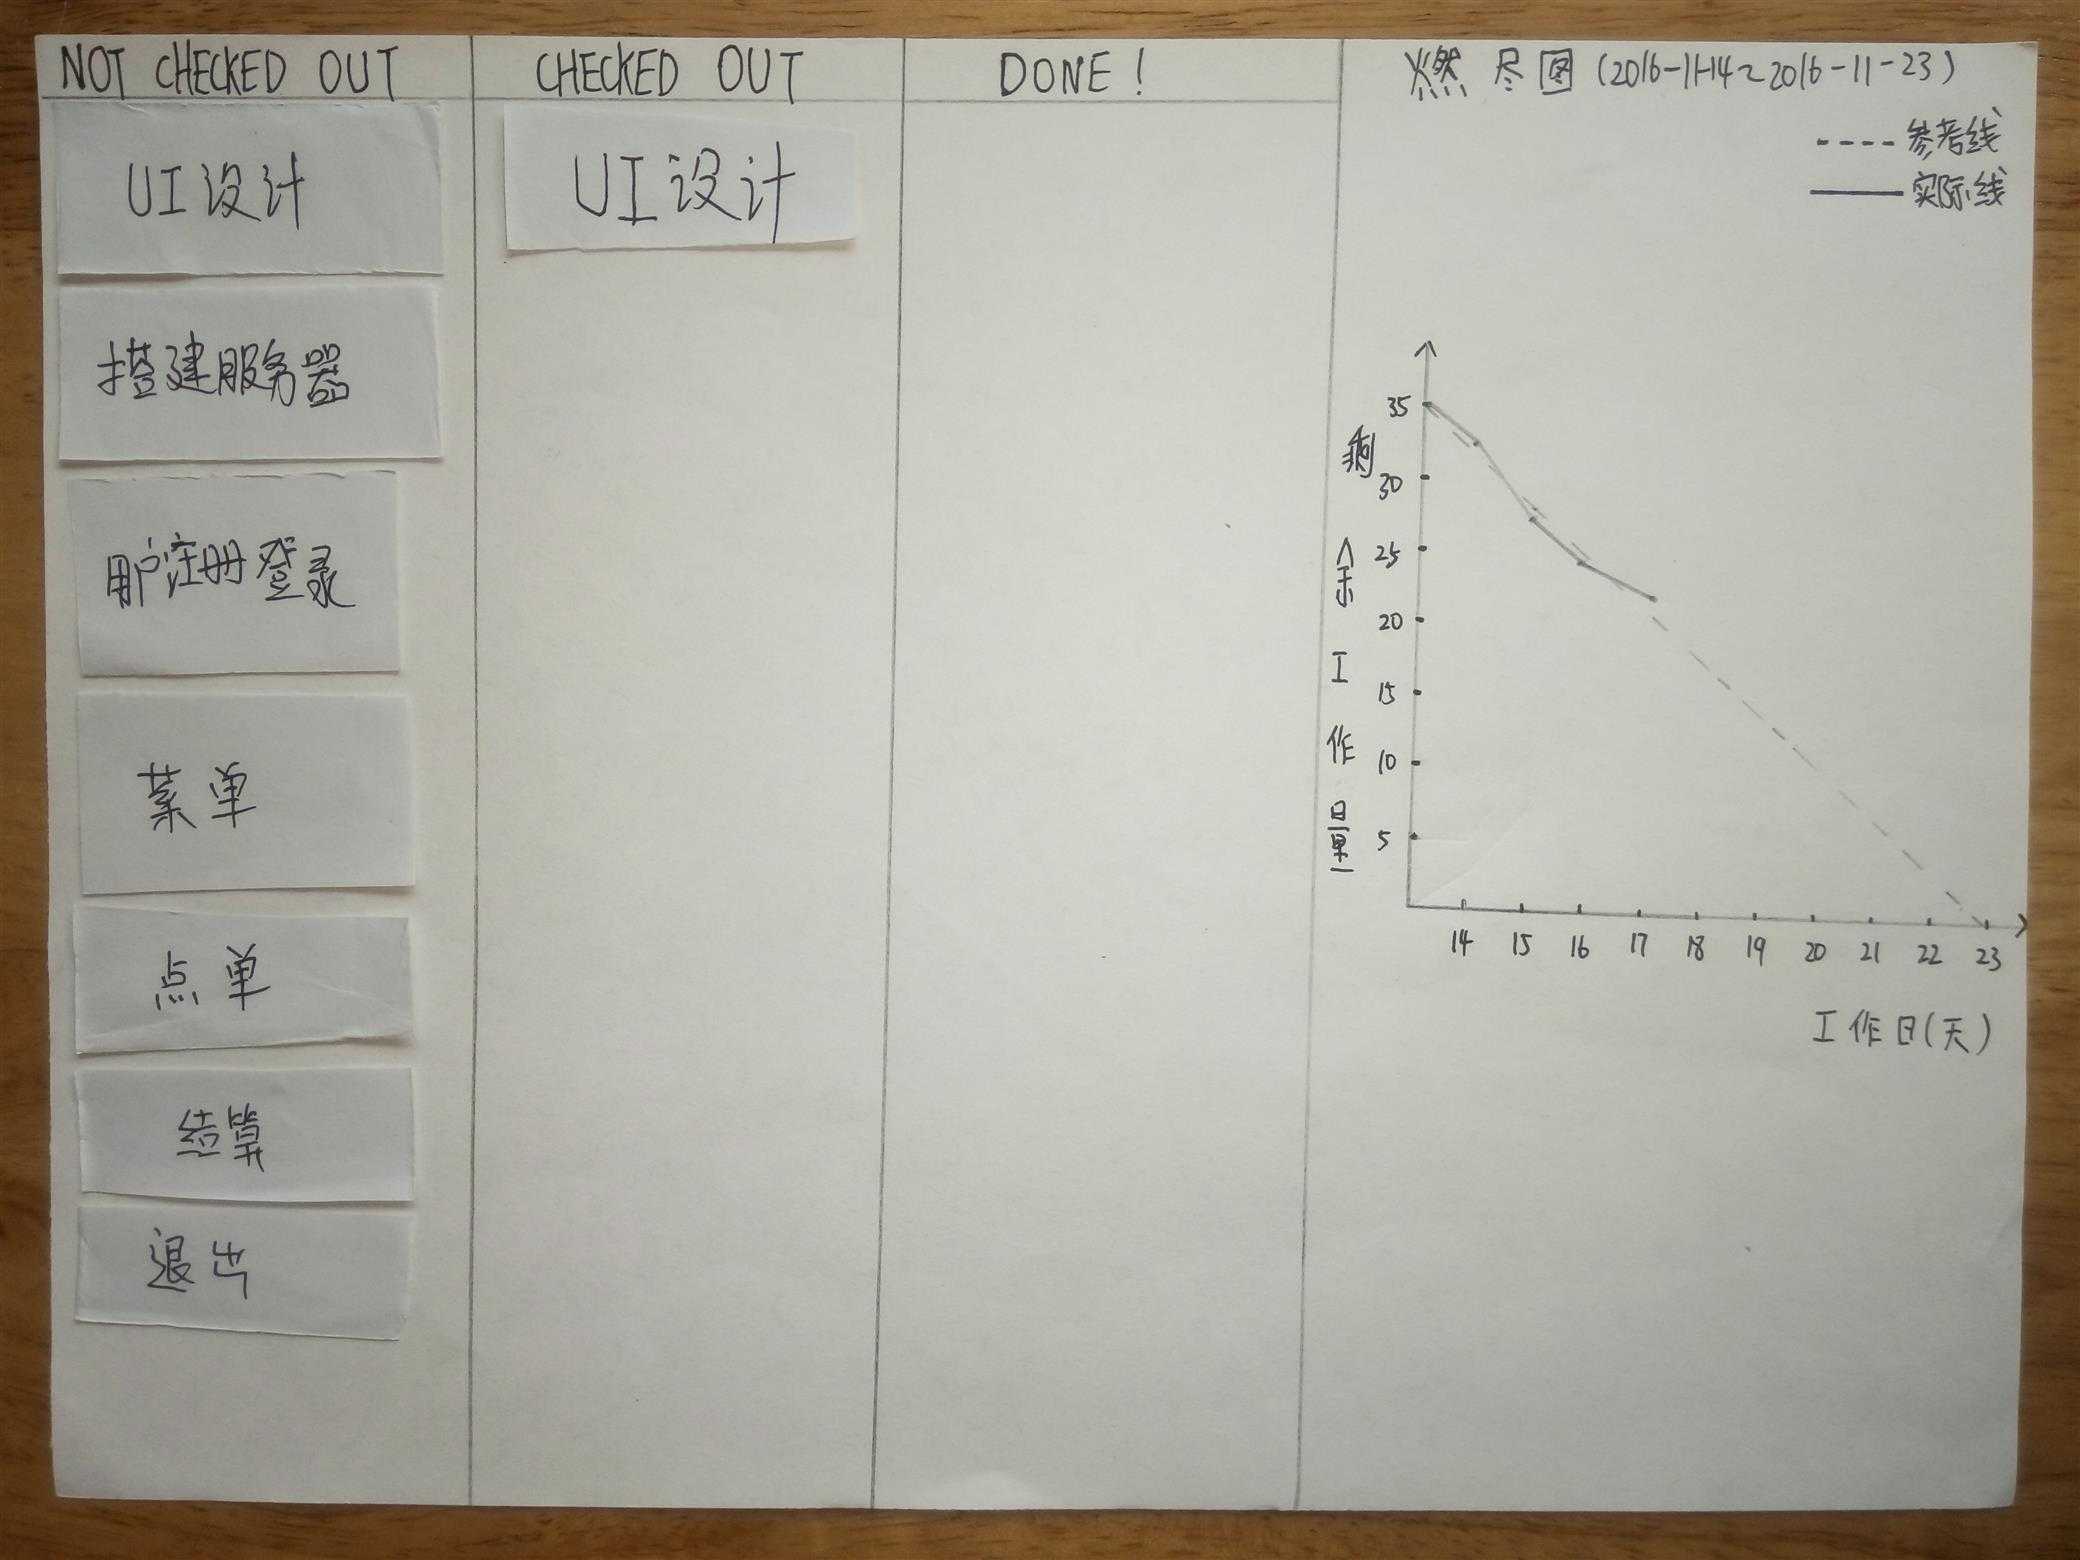 NOT CHECKED OUT
UI设计
搭建服务器
用户注册登录
菜单
点单
结算
退出
CHECKED OUT
UI设计
DONE!
燃尽图(2016-11-14~2016-11-23)
---- 参考线
实际线
剩余工作量
35
30
25
20
15
10
5
14 15 16 17 18 19 20 21 22 23
工作日(天)